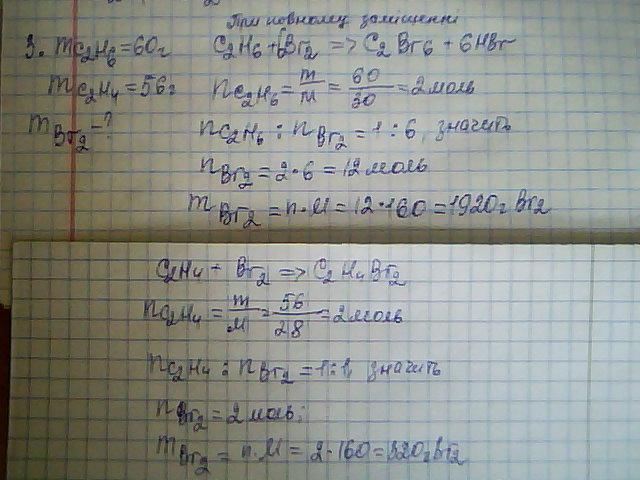 При повному заміщенні
3. mC₂H₆=60г C₂H₆+6Br₂ => C₂Br₆ + 6HBr
mC₂H₄=56г nC₂H₆ = m/M = 60/30 = 2моль
mBr₂-? nC₂H₆ : nBr₂ = 1 : 6, значить
nBr₂ = 2·6 = 12 моль
mBr₂ = n·M = 12·160 = 1920г Br₂
C₂H₄ + Br₂ => C₂H₄Br₂
nC₂H₄ = m/M = 56/28 = 2моль
nC₂H₄ : nBr₂ = 1:1, значить
nBr₂ = 2 моль;
mBr₂ = n·M = 2·160 = 320г Br₂